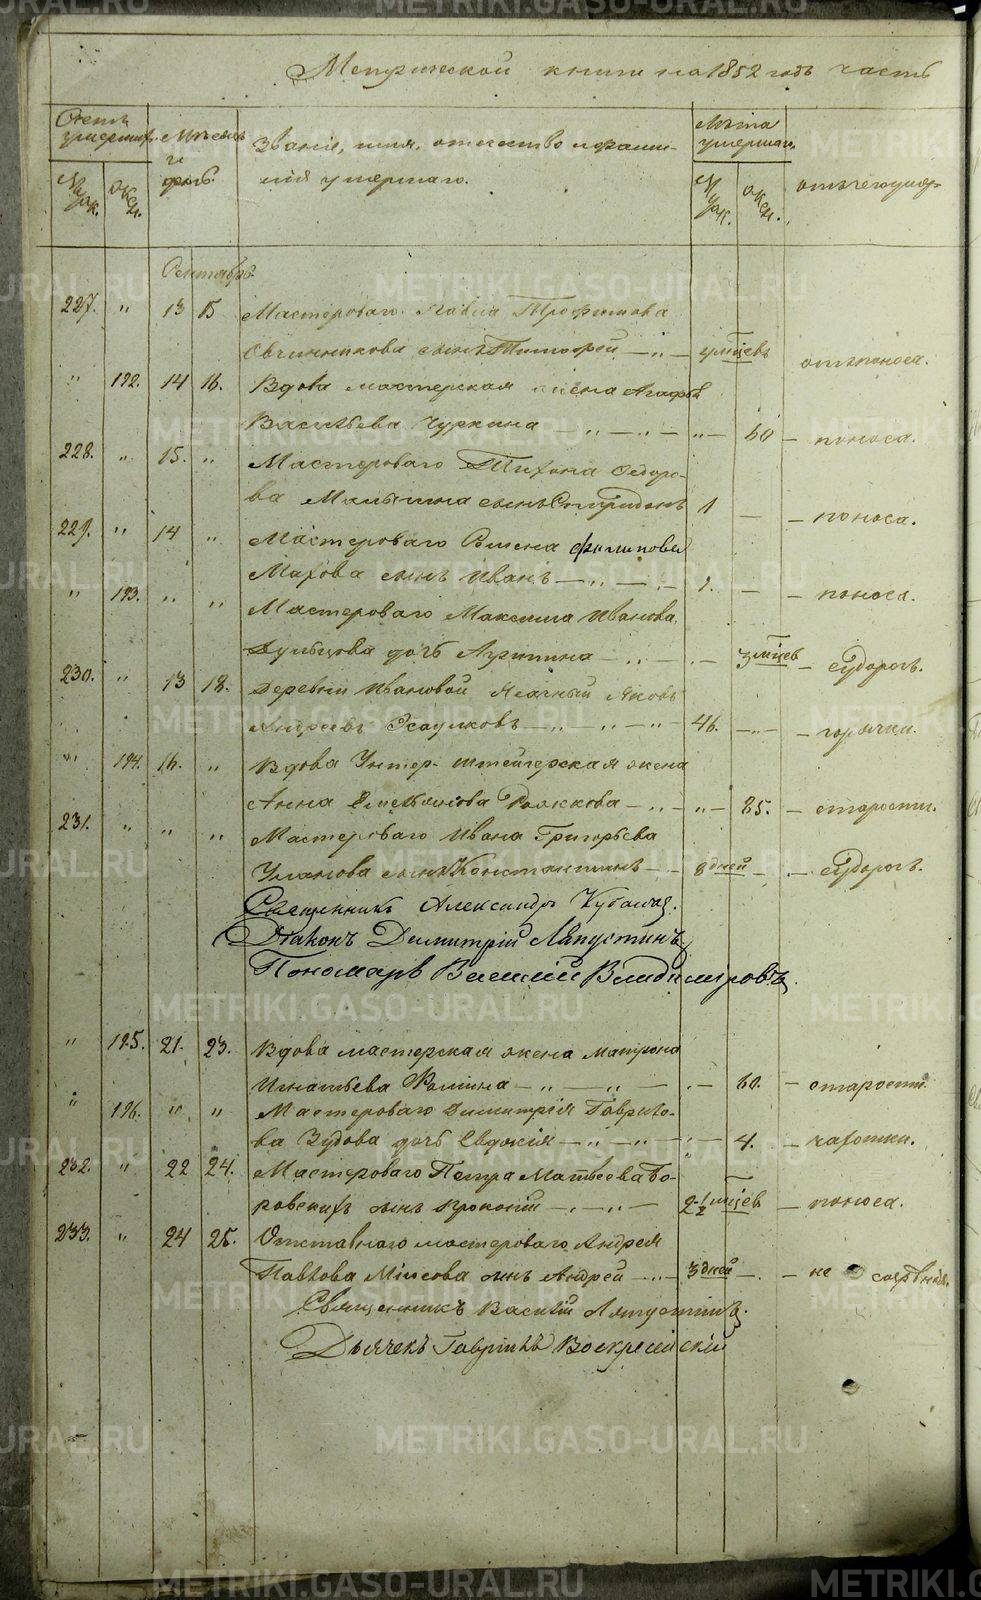 Метрической книги на 1852 годъ часть
Счетъ умершихъ.
Мѣсяцъ и день.
Званіе, имя, отчество и фами-
лія умершаго.
Лѣта умершаго
отъ чего умер.
Муж. Жен.
Муж. Жен.
Сентябрь
227. " 13 15 Мастероваго Павла Трофимова
Овчинникова сынъ Тимофей — " — мѣсцевъ отъ поноса.
" 192. 14 16. Вдова мастерская жена Агафья
Васильева Чуркина — " — " — " — 60 — поноса.
228. " 15. " Мастероваго Тихона Ѳедоро-
ва сынъ Спиридонъ 1 — — поноса.
229. " 14 " Мастероваго Филипова
Махова сынъ Иванъ — " — — поноса.
" 193. " " Мастероваго Максима Иванова
дочь — " — 3 мѣсцев —
230. " 13 18. Деревни Ивановой Яковъ
Андреевъ — " — " — " — 46. — " — — горячки.
" 194. 16. " Вдова Унтер-штейгерская жена
Анна — " — " — 85. — старости.
231. " " " Мастероваго Ивана Григорьева
сынъ Константинъ — 8 дней —
Священникъ Александръ
Діаконъ Димитрій Ляпустинъ
Пономарь Василій Владимировъ.
" 195. 21. 23. Вдова мастерская жена Матрона
Игнатьева — " — " — " — 60. — старости.
" 196. " " Мастероваго Димитрія Гаврило-
ва Зудова дочь Евдокія — " — " " — 4. — чахотки.
232. " 22 24. Мастероваго Петра Матвеева Бо-
ровскихъ сынъ Прокопій — " — " — 2 1/2 мѣсцев — поноса.
233. " 24 25. Отставнаго мастероваго Андрея
Павлова сынъ Андрей — " — 3 дней — . — не
Священникъ Василій Ляпустинъ.
Дьячекъ Гавріилъ Воскресенскій
METRIKI.GASO-URAL.RU